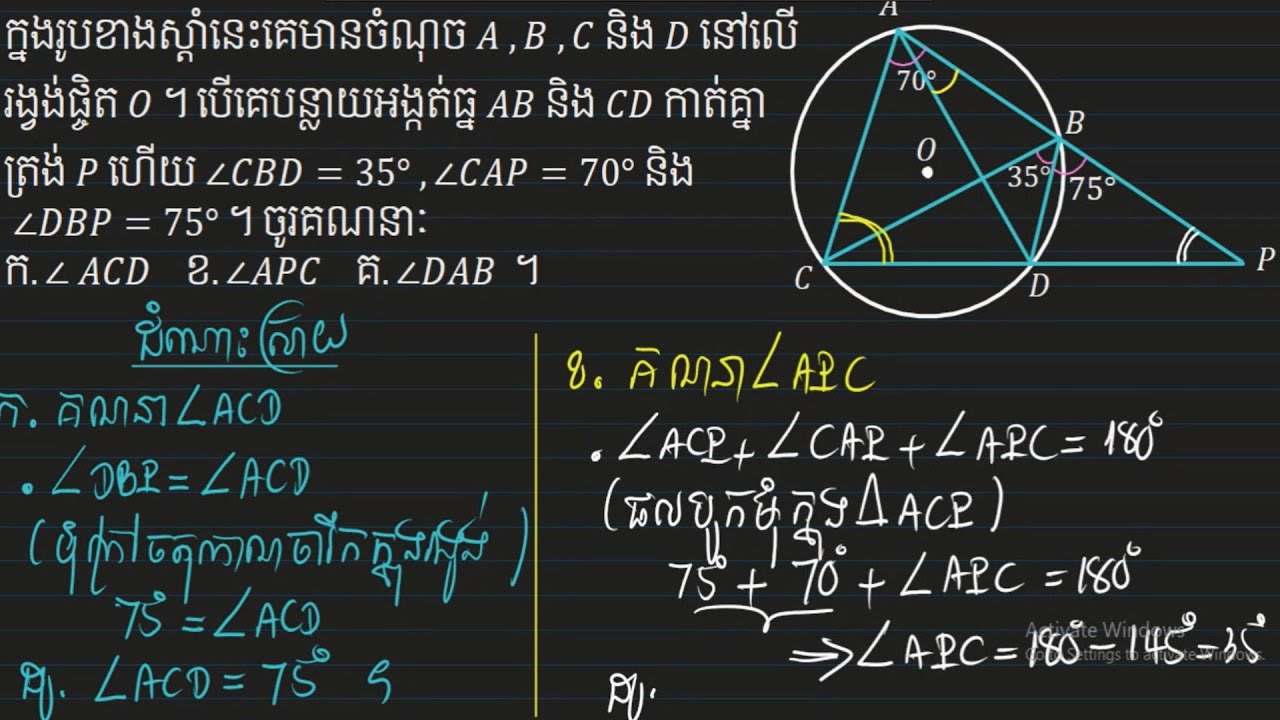 ក្នុងរូបខាងស្តាំនេះគេមានចំណុច A , B , C និង D នៅលើ
រង្វង់ផ្ចិត O ។ បើគេបន្លាយអង្កត់ធ្នូ AB និង CD កាត់គ្នា
ត្រង់ P ហើយ ∠CBD = 35° , ∠CAP = 70° និង
∠DBP = 75° ។ ចូរគណនាៈ
ក.∠ ACD ខ.∠APC គ.∠DAB ។
A
70°
B
O
35°
75°
C
D
P
ដំណោះស្រាយ
ក. គណនា ∠ACD
• ∠DBP = ∠ACD
(មុំក្រៅចតុកោណចារឹកក្នុងរង្វង់)
75° = ∠ACD
ដូ. ∠ACD = 75° ។
ខ. គណនា ∠APC
• ∠ACP + ∠CAP + ∠APC = 180°
(ផលបូកមុំក្នុង Δ ACP)
75° + 70° + ∠APC = 180°
⇒ ∠APC = 180° − 145° = 35°
ដូ.
Activate Windows
Go to Settings to activate Windows.